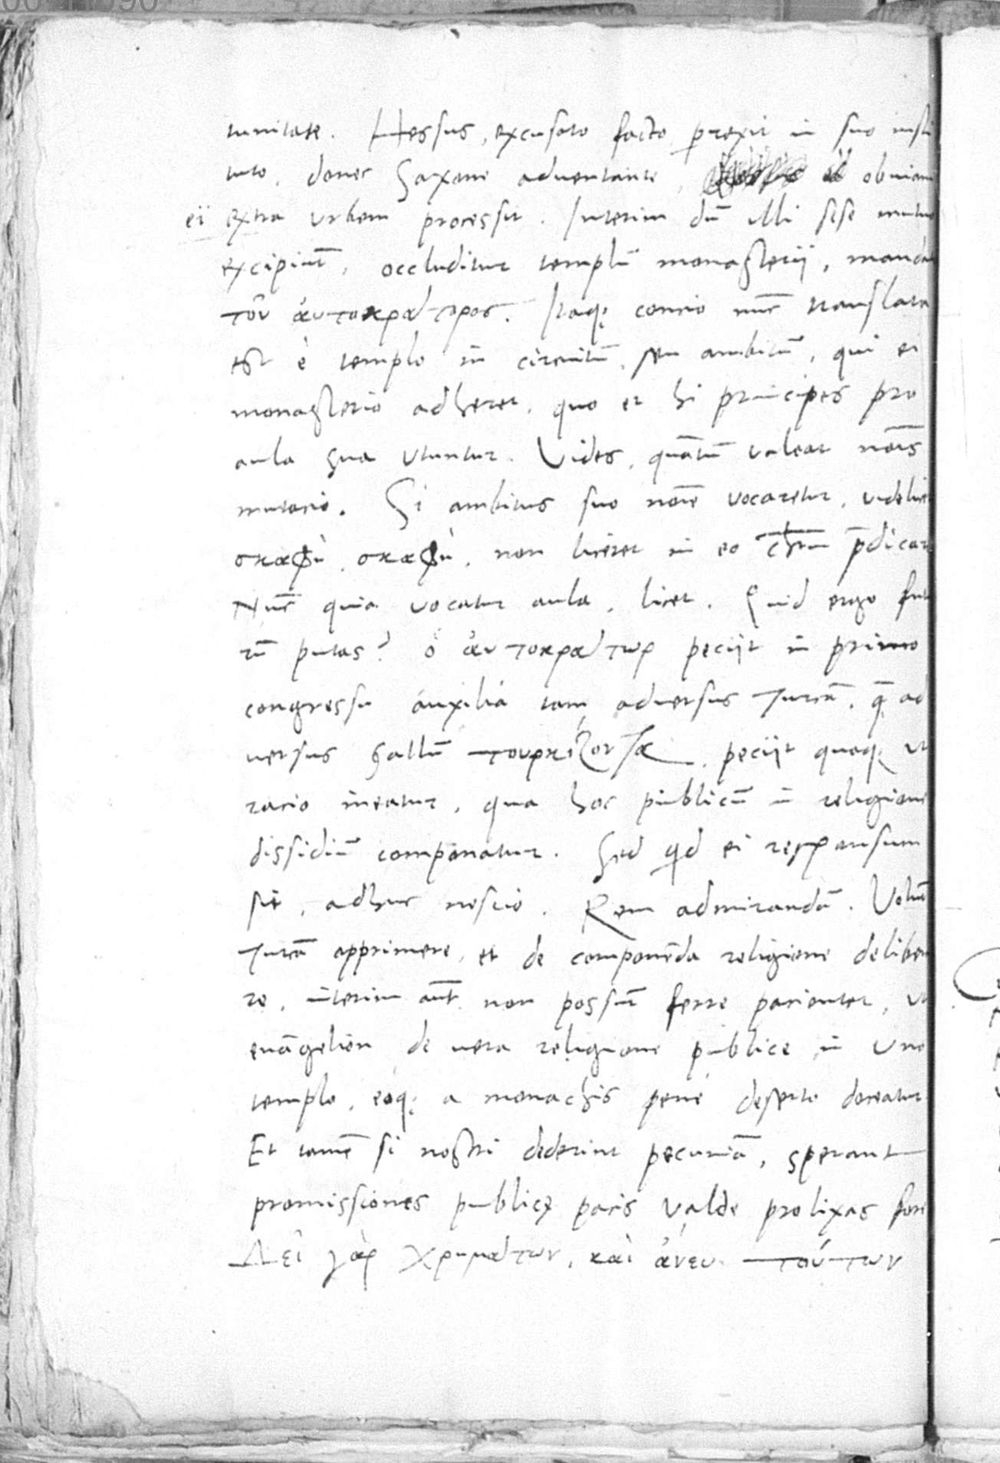 tunitate. Hessus, excusato facto, perexit in suo insti
tuto, donec Saxone adventante, obviam
ei extra urbem processit. Interim dū illi sese mutuo
excipiūt, occluditur templū monasterii, mandato
τοῦ ἀυτοκράτορος. Itaq; concio nūc translata
est è templo in circuitū, seu ambitū, qui ei
monasterio adheret, quo et hi principes pro
aula sua utuntur. Vides, quātū valeat nōis
mutacio. Si ambitus suo nōie vocaretur, videlicet
non liceret in eo Chrm p̄dicari
Nūc quia vocatur aula, licet. Quid ergo futu
rū putas? ὁ ἀυτοκράτωρ peciit in primo
congressu auxilia tam adversus Turcā, q̄ ad
versus Gallū peciit quoq; ut
racio ineatur, qua hoc publicū ī religione
dissidiū componatur. Sed qd ei responsum
sit, adhuc nescio. Rem admirandā. Volūt
Turcā opprimere, et de componēda religione delibera
re, interim aūt non possūt ferre pacienter, ut
euāgelion de vera religione publice in uno
templo, eoq; a monachis penè deserto doceatur
Et tamē si nostri dederint pecuniā, sperant
promissiones publicę pacis valde prolixas fore
Δεῖ γὰρ χρημάτων, καὶ ἄνευ τούτων